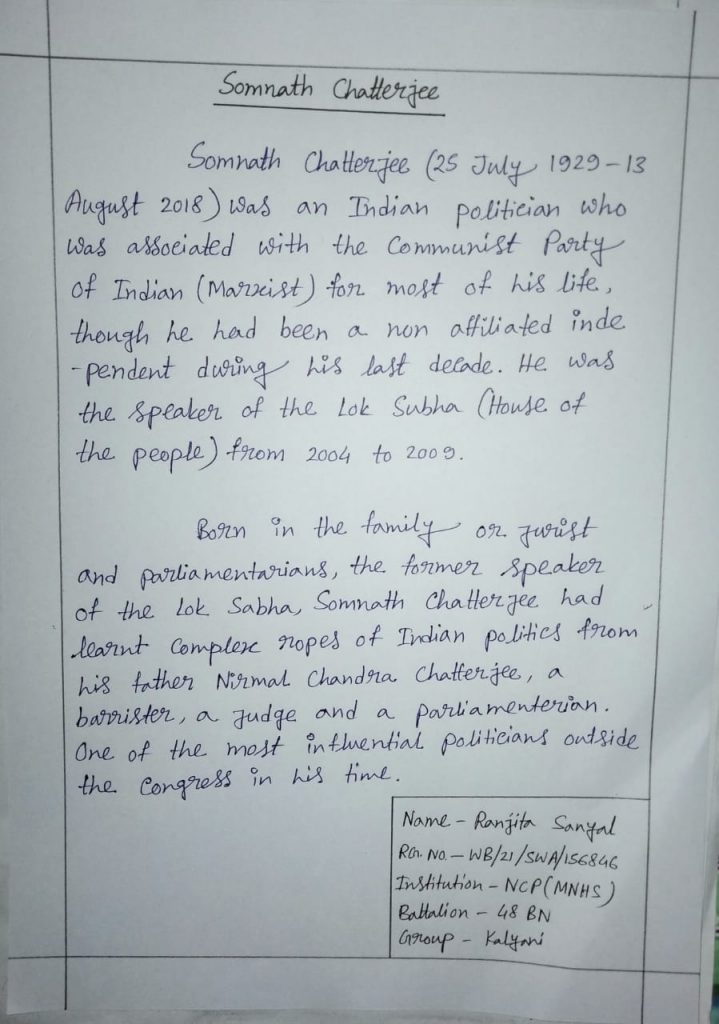 Somnath Chatterjee
Somnath Chatterjee (25 July 1929-13
August 2018) was an Indian politician who
was associated with the Communist Party
of Indian (Marxist) for most of his life,
though he had been a non affiliated inde
-pendent during his last decade. He was
the speaker of the Lok Subha (House of
the people) from 2004 to 2009.
Born in the family or jurist
and parliamentarians, the former speaker
of the Lok Sabha, Somnath Chatterjee had
learnt complex ropes of Indian politics from
his father Nirmal Chandra Chatterjee, a
barrister, a judge and a parliamenterian.
One of the most influential politicians outside
the Congress in his time.
Name - Ranjita Sanyal
RGt. No. - WB/21/SWA/156846
Institution - NCP(MNHS)
Battalion - 48 BN
Group - Kalyani